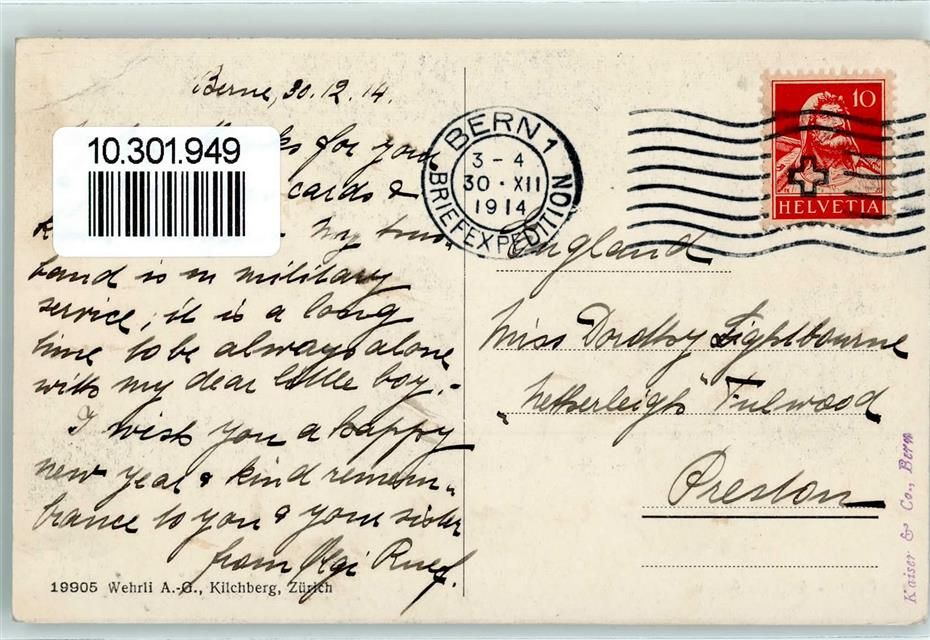 Berne, 30.12.14.
10.301.949
for your
cards &
my hus„
band is in military
service; it is a long
time to be always alone
with my dear little boy.-
I wish you a happy
new year & kind remem„
brance to you & your sister
from Ruef.
19905 Wehrli A.-G., Kilchberg, Zürich
BERN 1
3-4
30·XII
1914
BRIEFEXPEDITION
10
HELVETIA
England
Miss Dorothy Lightbourne
„Netherleigh" Fulwood
Preston
Kaiser & Co., Bern